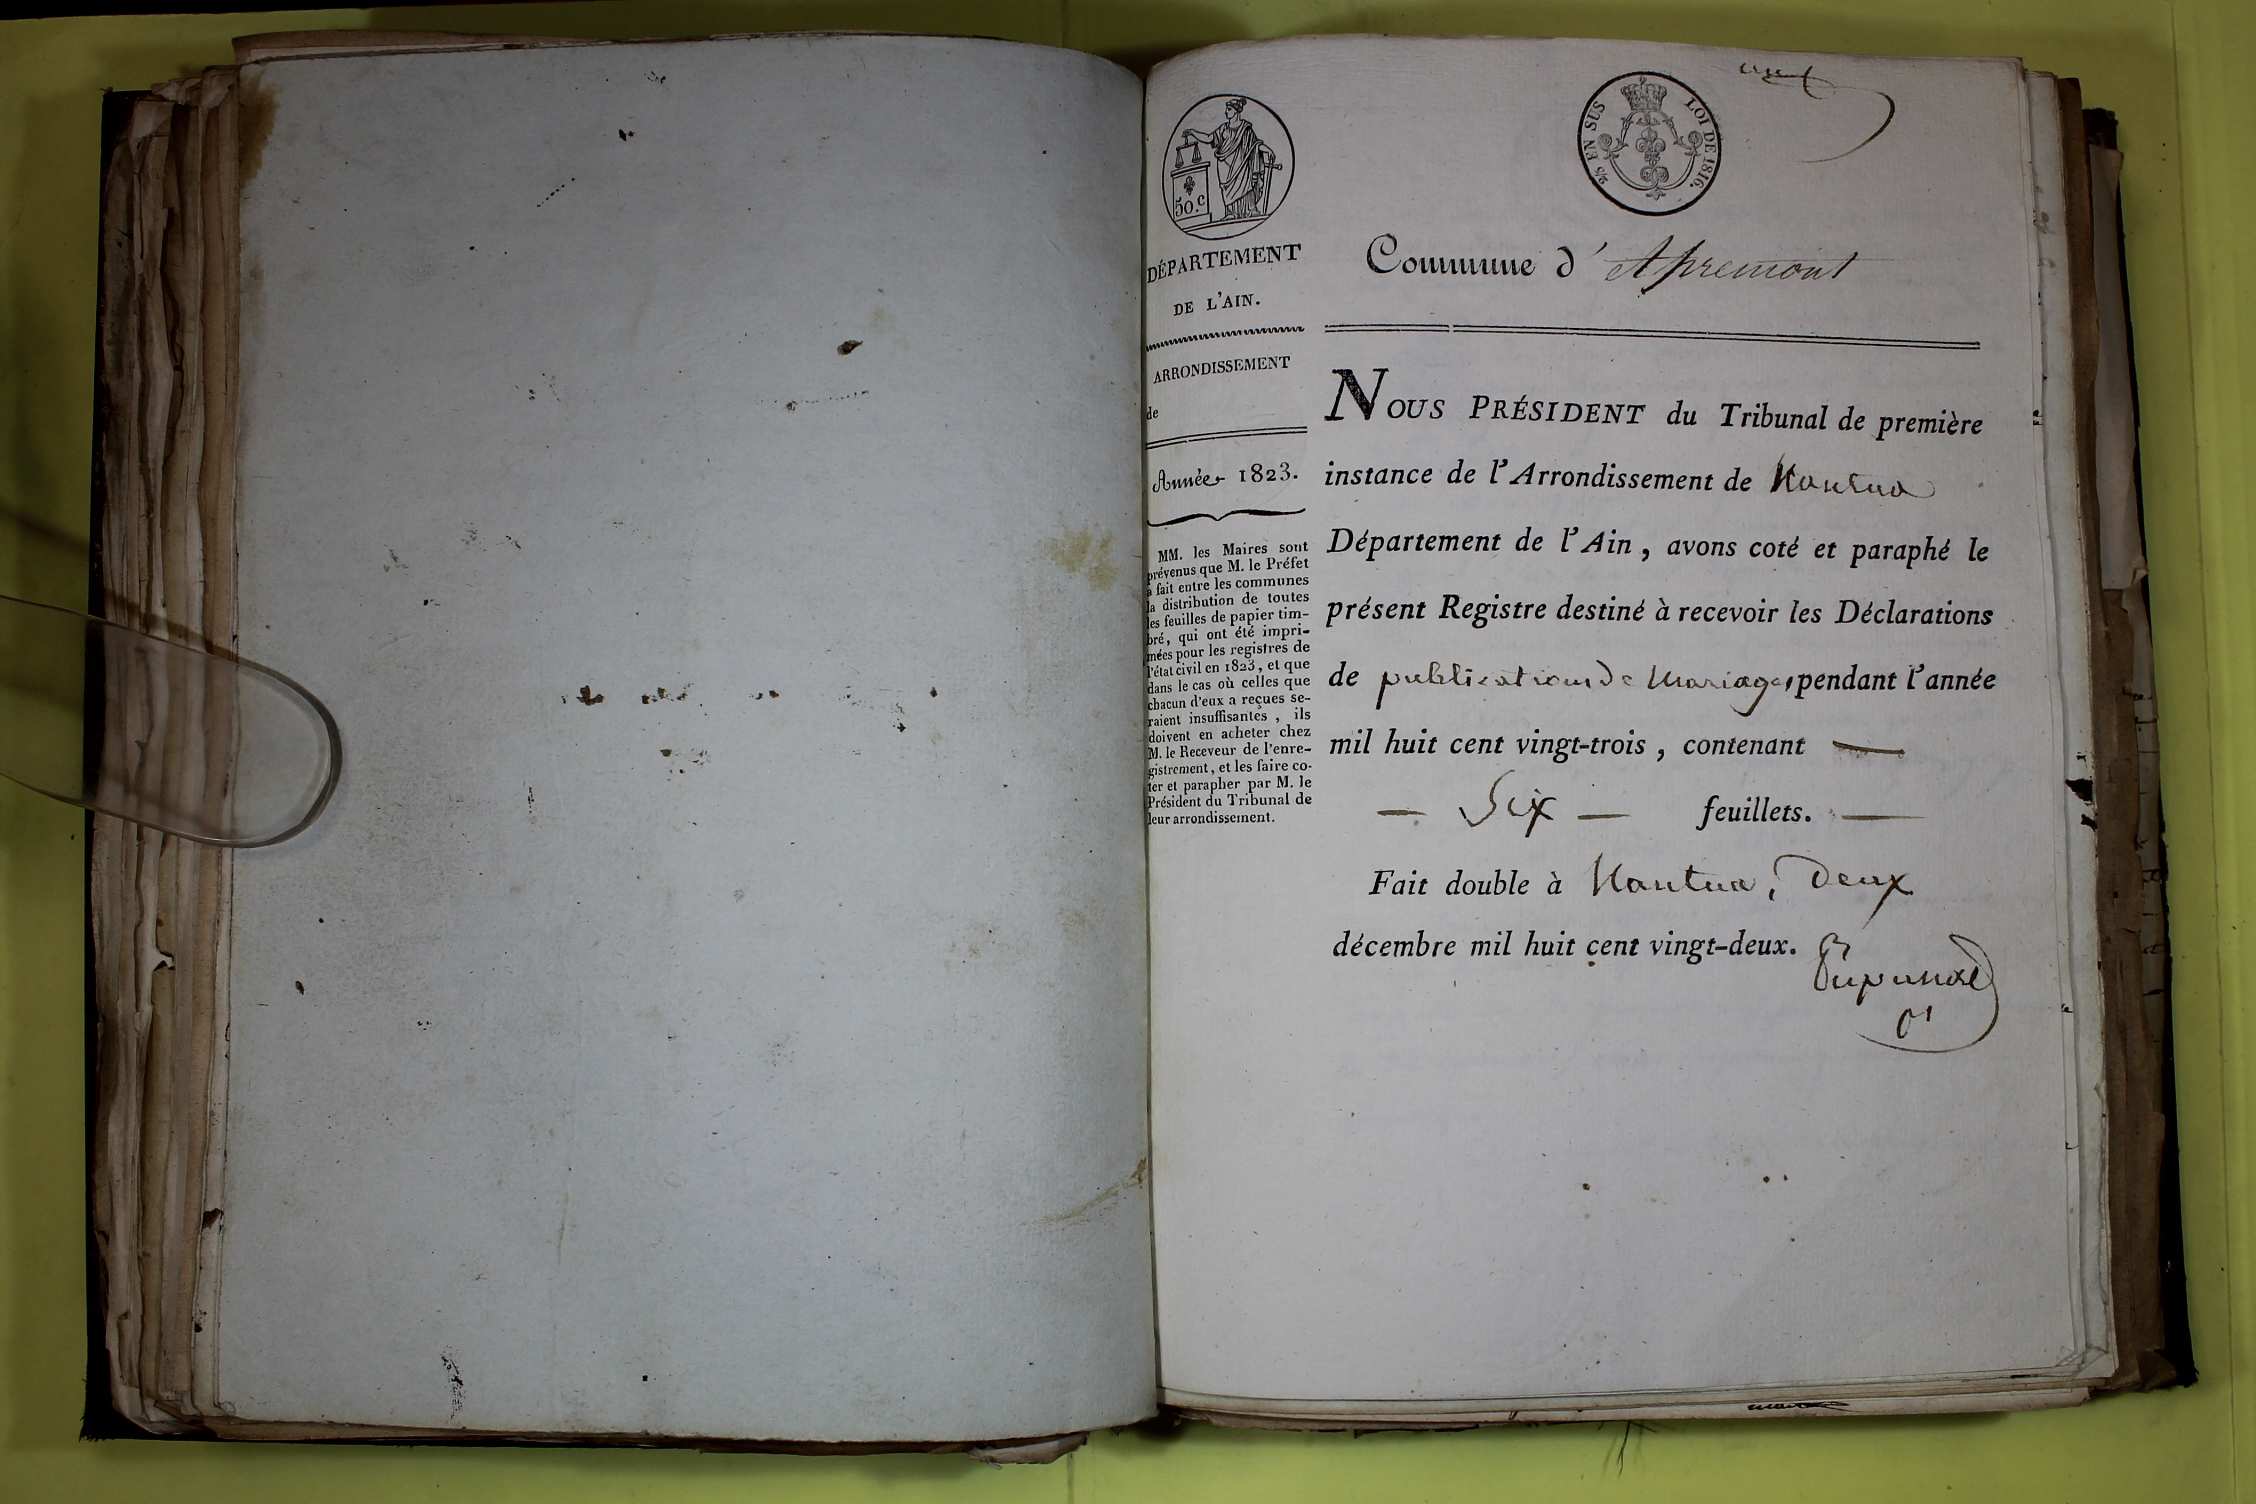 50.c
DÉPARTEMENT
DE L'AIN.
ARRONDISSEMENT
de
Année 1823.
MM. les Maires sont
prévenus que M. le Préfet
a fait entre les communes
la distribution de toutes
les feuilles de papier tim-
bré, qui ont été impri-
mées pour les registres de
l'état civil en 1823, et que
dans le cas où celles que
chacun d'eux a reçues se-
raient insuffisantes, ils
doivent en acheter chez
M. le Receveur de l'enre-
gistrement, et les faire co-
ter et parapher par M. le
Président du Tribunal de
leur arrondissement.
EN SUS LOI DE 1816.
Commune d'Apremont
NOUS PRÉSIDENT du Tribunal de première
instance de l'Arrondissement de Nantua
Département de l'Ain, avons coté et paraphé le
présent Registre destiné à recevoir les Déclarations
de publications de Mariages pendant l'année
mil huit cent vingt-trois, contenant —
— Six — feuillets. —
Fait double à Nantua, Deux
décembre mil huit cent vingt-deux.